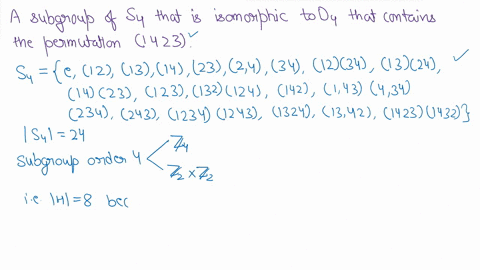 A subgroup of S4 that is isomorphic to D4 that contains
the permutation (1423).✓
S4 = {e, (12), (13), (14), (23), (2,4), (34), (12)(34), (13)(24), ✓
(14)(23), (123), (132)(124), (142), (1,43) (4,34)
(234), (243), (1234) (1243), (1324), (13,42), (1423)(1432)}
|S4| = 24
Subgroup order 4
ℤ4
ℤ2 × ℤ2
i.e |H| = 8 bec